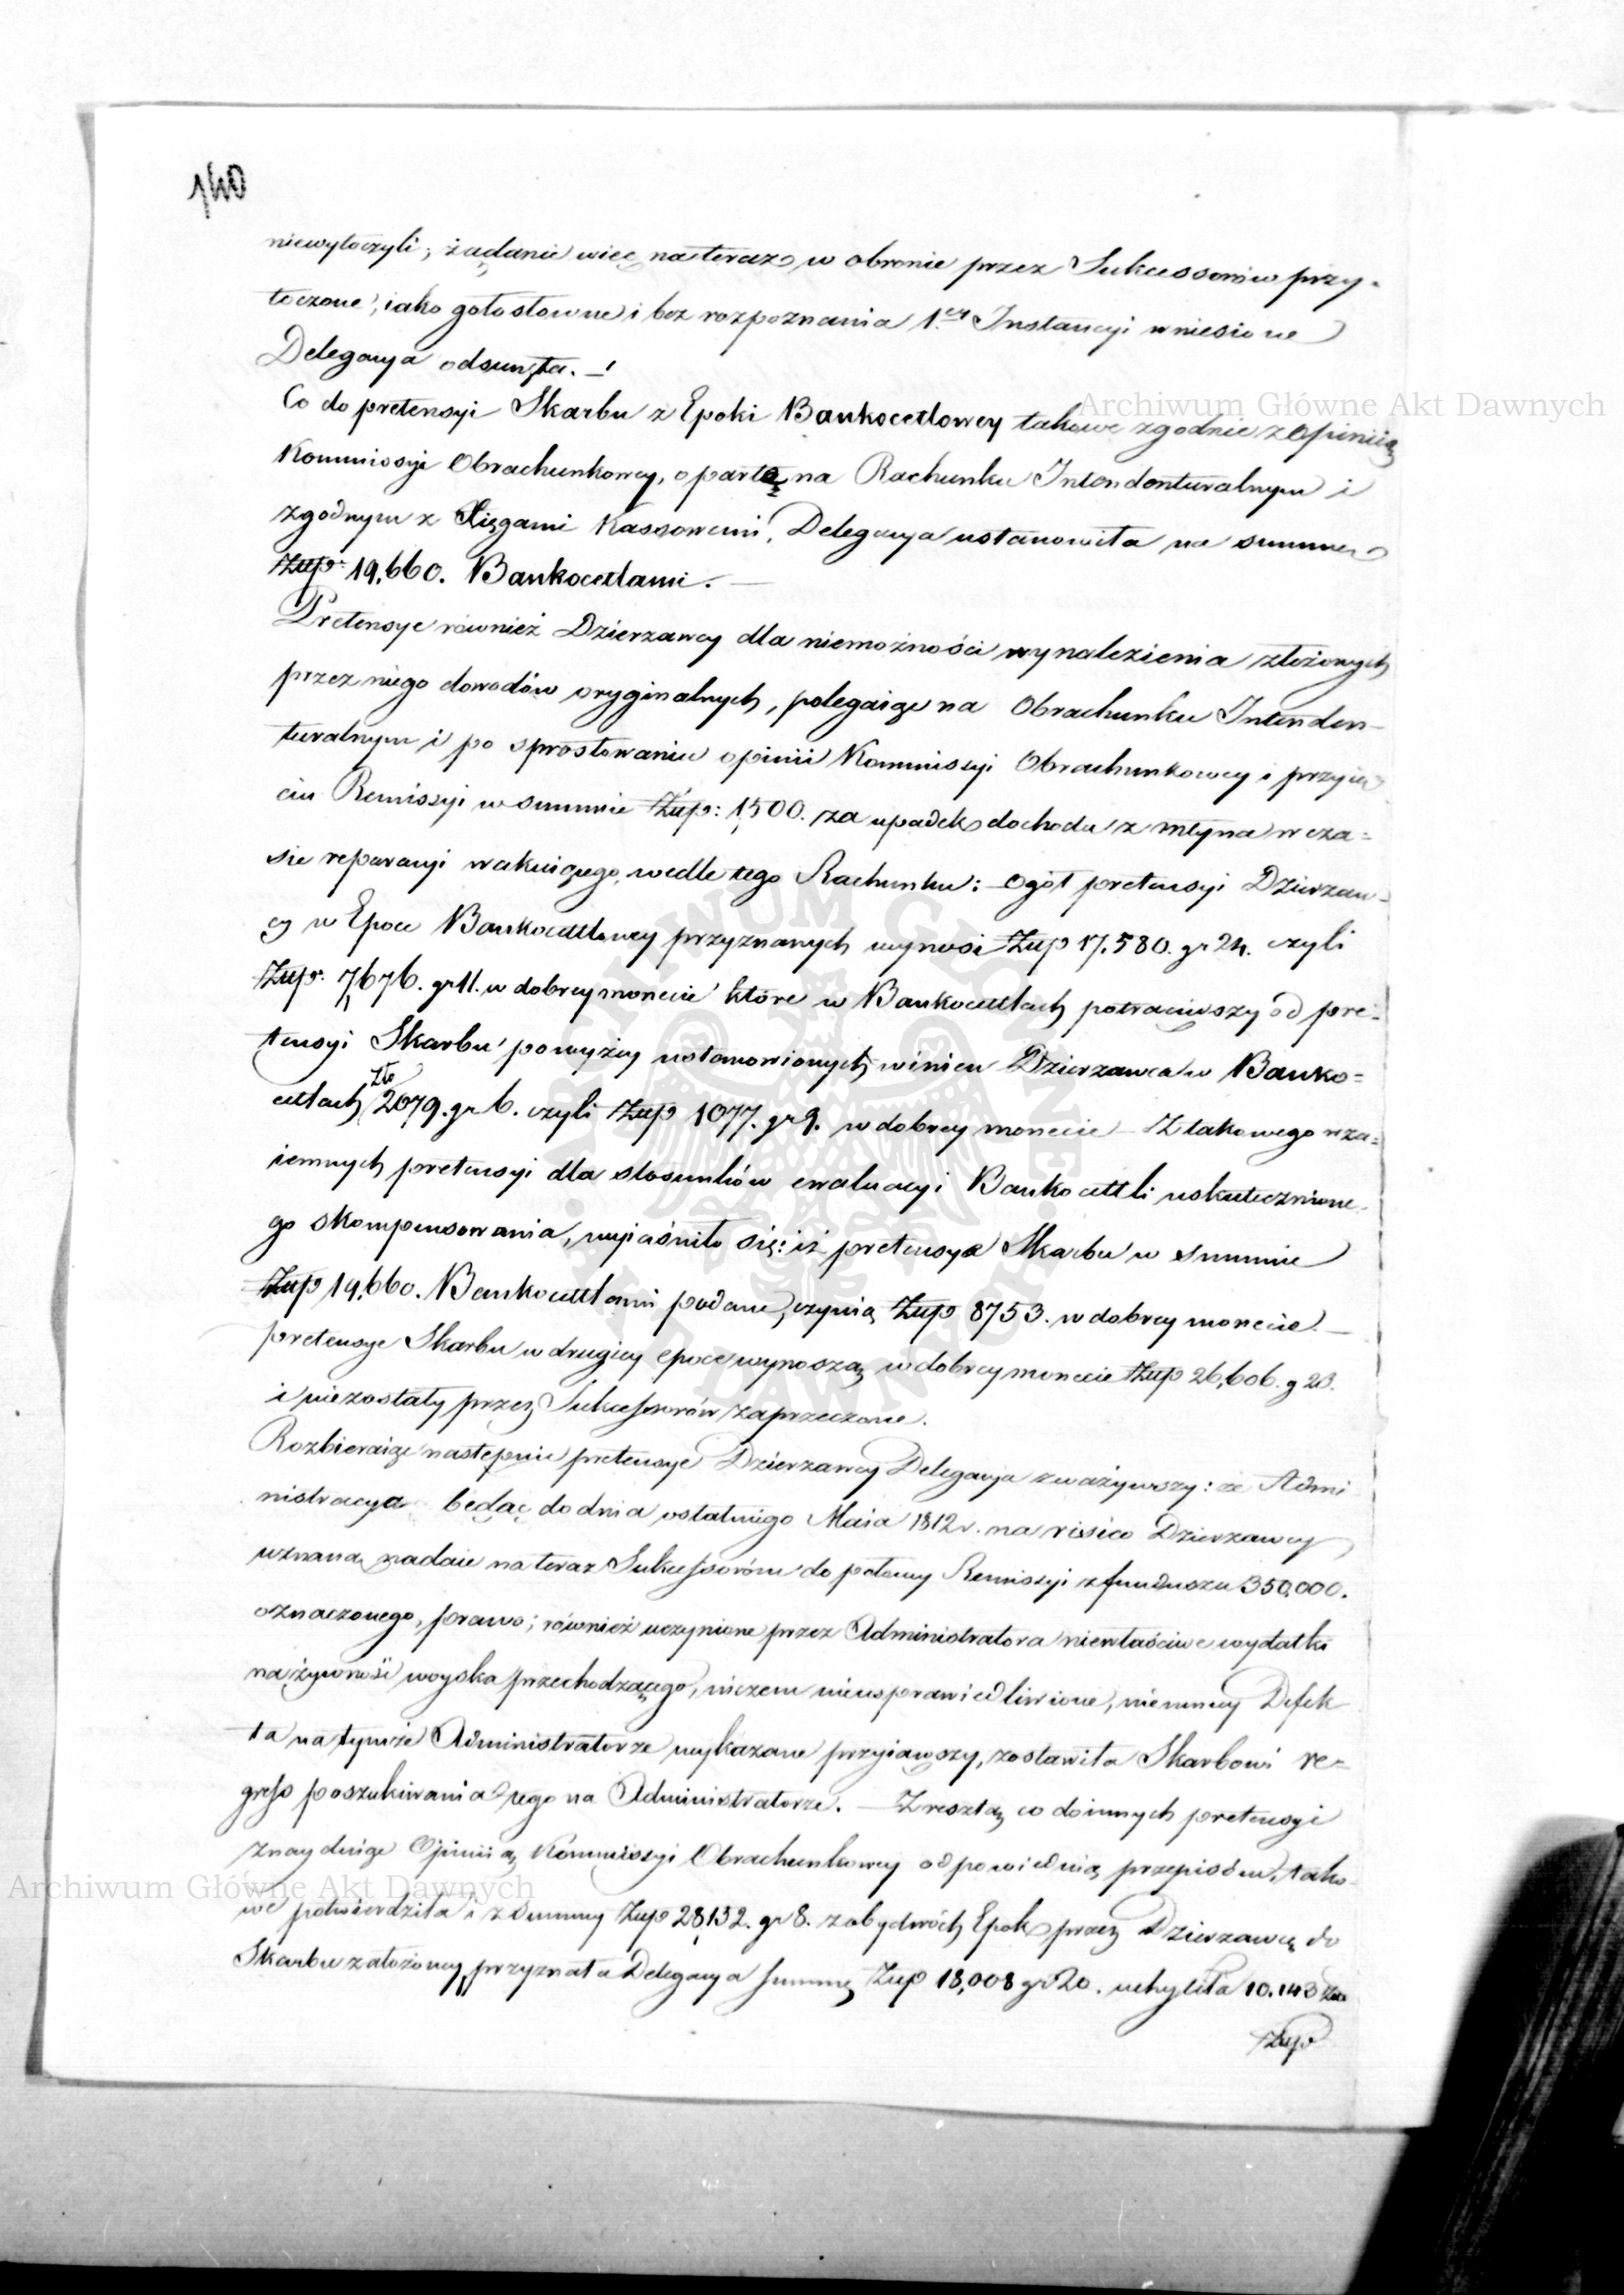 140
niewytoczyli; żądanie więc na teraz w obronie przez Sukcessorów przy-
toczone, iako gołosłowne i bez rozpoznania 1.ey Instancyi wniesione
Delegacya odsunęła. —
Co do pretensyi Skarbu z Epoki Bankocetlowey takowe zgodnie z Opinią
Kommissyi Obrachunkowey, opartą na Rachunku Intendenturalnym i
zgodnym z Xięgami Kassowemi, Delegacya ustanowiła na summę
Złp. 19,660. Bankocetlami. —
Pretensye również Dzierzawcy dla niemożności wynalezienia złożonych
przez niego dowodów oryginalnych, polegaiąc na Obrachunku Intenden-
turalnym i po sprostowaniu opinii Kommissyi Obrachunkowey i przyię-
ciu Remissyi w summie Złp: 1,500. za upadek dochodu z młyna w cza=
sie reparacyi wakuiącego, wedle tego Rachunku: Ogół pretensyi Dzierzaw-
cy w Epoce Bankocetlowey przyznanych wynosi Złp 17.580. gr 24. czyli
Złp. 7,676. gr 11. w dobrey monecie które w Bankocetlach potrąciwszy od pre-
tensyi Skarbu powyżey ustanowionych winien Dzierzawca w Banko=
cetlach Zł 2079. gr 6. czyli Złp 1077. gr 9. w dobrey monecie — Z takowego wza=
iemnych pretensyi dla stosunków ewaluacyi Bankocetli uskutecznione-
go skompensowania, wyiaśniło się: iż pretensye Skarbu w summie
Złp 19,660. Bankocetlami podane, czynią Złp 8753. w dobrey monecie. —
pretensye Skarbu w drugiey epoce wynoszą w dobrey monecie Złp 26,606. g 23.
i niezostały przez Sukcessorów zaprzeczone.
Rozbieraiąc następnie pretensye Dzierzawcy Delegacya zważywszy: że Admi
nistracya będąc do dnia ostatniego Maia 1812 r. na rissico Dzierzawcy
uznaną nadaie na teraz Sukcessorom do połowy Remissyi z funduszu 350,000.
oznaczonego, prawo; również uczynione przez Administratora niewłaściwe wydatki
na żywność woyska przechodzącego, niczem nieusprawiedliwione, niemniey Defek
ta na tymże Administratorze wykazane przyiąwszy, zostawiła Skarbowi re=
gress poszukiwania tego na Administratorze. — Zresztą co do innych pretensyi
znayduiąc Opinią Kommissyi Obrachunkowey odpowiednią przepisom, tako-
we potwierdziła i z summy Złp 28,132. gr 8. z obydwóch Epok przez Dzierzawcę do
Skarbu założoney, przyznała Delegacya summę Złp 18,008 gr 20. uchyliła 10.143
Złp
Archiwum Główne Akt Dawnych
Archiwum Główne Akt Dawnych
ARCHIWUM GŁÓWNE AKT DAWNYCH